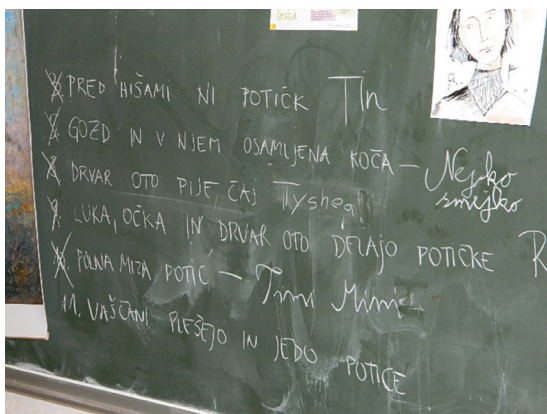 PRED HIŠAMI NI POTIČK Tin
GOZD IN V NJEM OSAMLJENA KOČA – Nejko
smejko
DRVAR OTO PIJE ČAJ Tyshea
LUKA, OČKA IN DRVAR OTO DELAJO POTIČKE R
POLNA MIZA POTIC – Timi
11. VAŠČANI PLEŠEJO IN JEDO POTICE